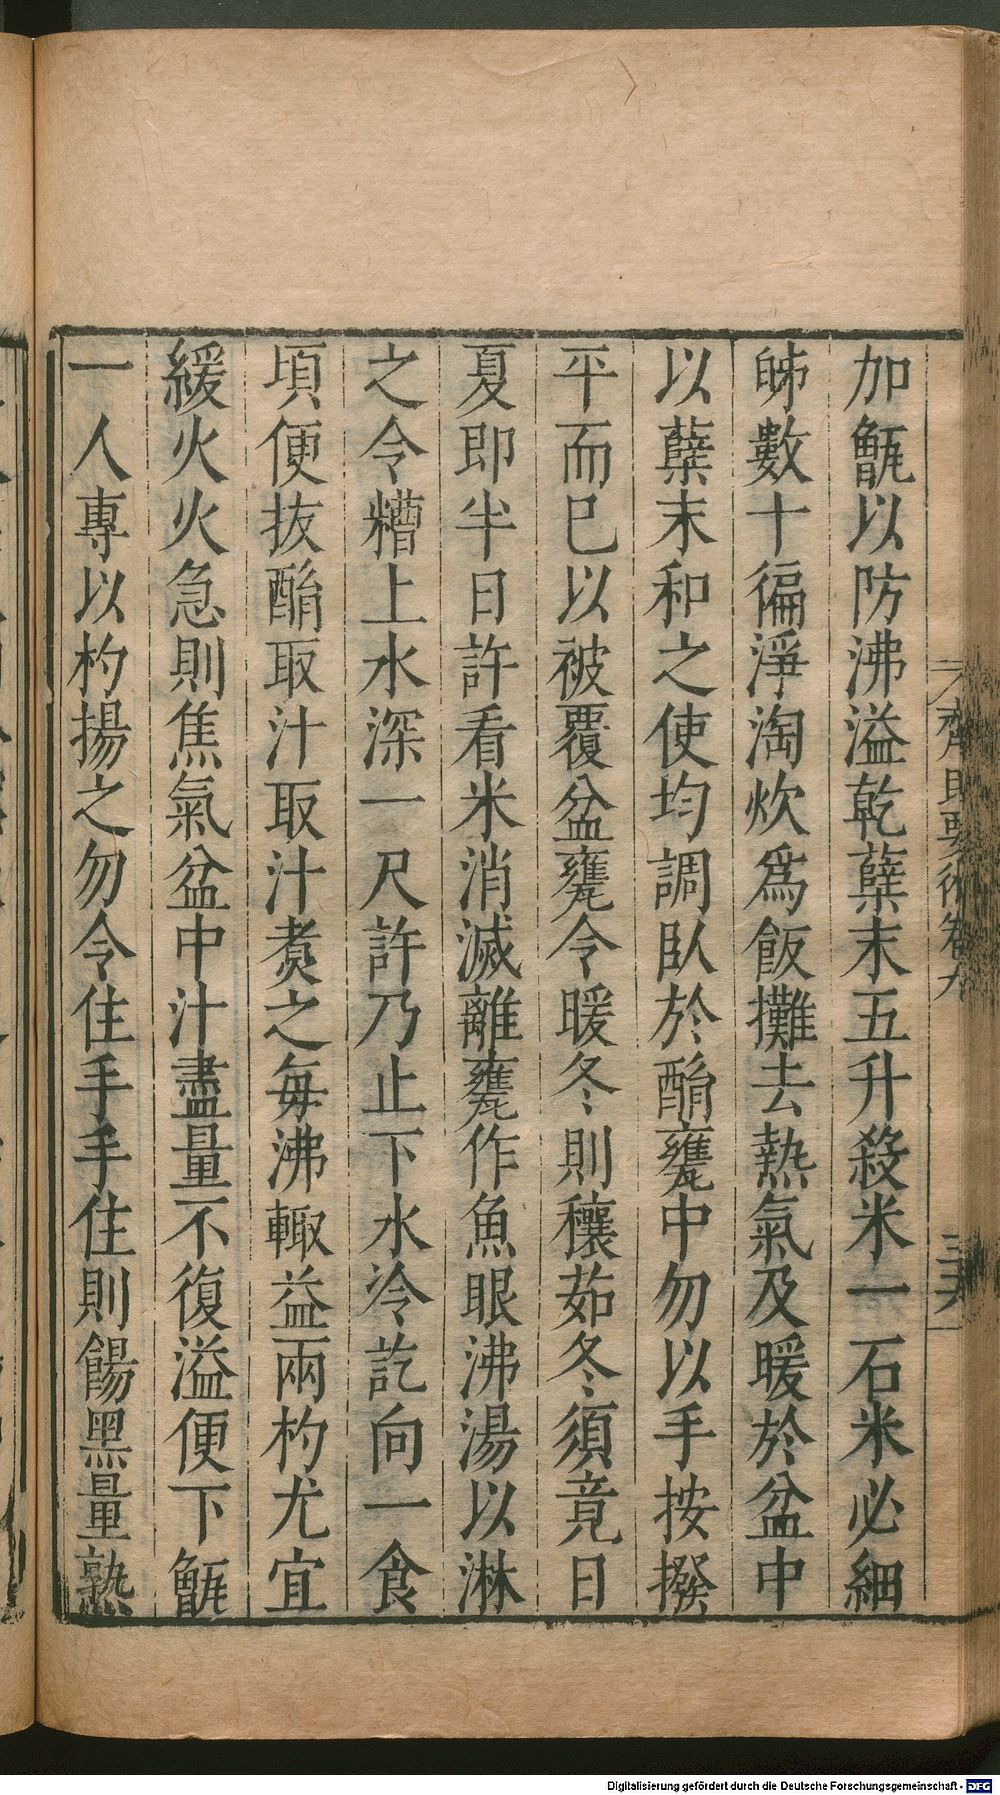 加甑以防沸溢乾糵末五升殺米一石米必細
數十徧淨淘炊爲飯攤去熱氣及暖於盆中
以糵末和之使均調臥於酳甕中勿以手按撥
平而巳以被覆盆甕令暖冬則穰茹冬須竟日
夏即半日許看米消滅離甕作魚眼沸湯以淋
之令糟上水深一尺許乃止下水冷訖向一食
頃便拔酳取汁取汁煑之每沸輙益兩杓尤宜
緩火火急則焦氣盆中汁盡量不復溢便下甑
一人專以杓揚之勿令住手手住則餳黑量熟
齊民要術卷九
Digitalisierung gefördert durch die Deutsche Forschungsgemeinschaft - DFG